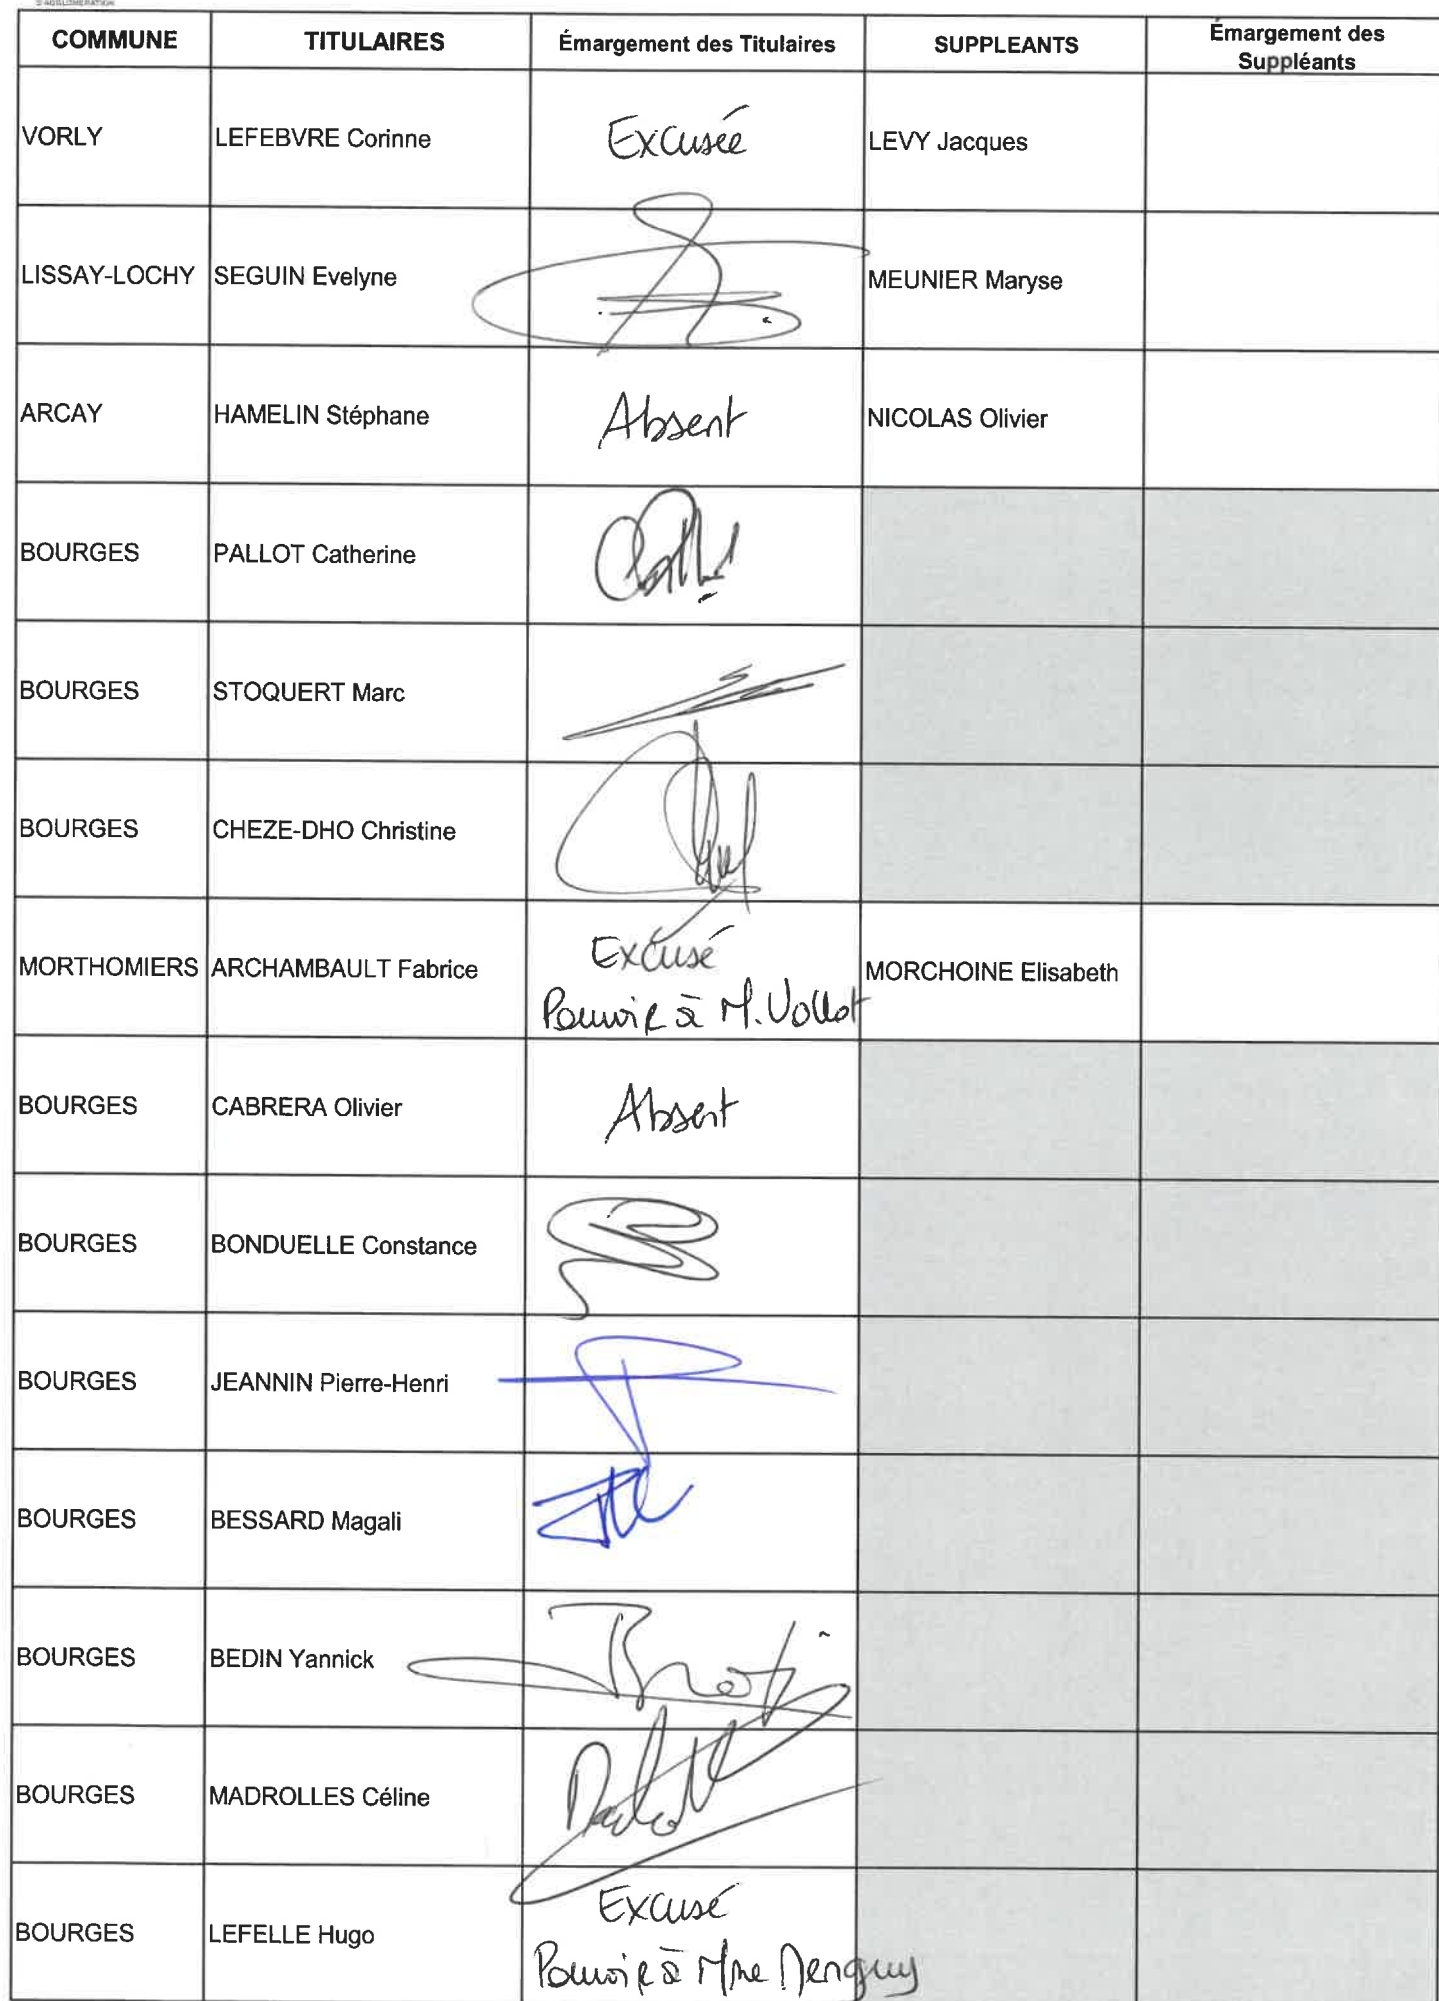 D'AGGLOMÉRATION
COMMUNE TITULAIRES Émargement des Titulaires SUPPLEANTS Émargement des Suppléants
VORLY LEFEBVRE Corinne Excusée LEVY Jacques
LISSAY-LOCHY SEGUIN Evelyne MEUNIER Maryse
ARCAY HAMELIN Stéphane Absent NICOLAS Olivier
BOURGES PALLOT Catherine
BOURGES STOQUERT Marc
BOURGES CHEZE-DHO Christine
MORTHOMIERS ARCHAMBAULT Fabrice Excusé MORCHOINE Elisabeth
Pouvoir à M. Vollot
BOURGES CABRERA Olivier Absent
BOURGES BONDUELLE Constance
BOURGES JEANNIN Pierre-Henri
BOURGES BESSARD Magali
BOURGES BEDIN Yannick
BOURGES MADROLLES Céline
BOURGES LEFELLE Hugo Excusé
Pouvoir à Mme Menguy